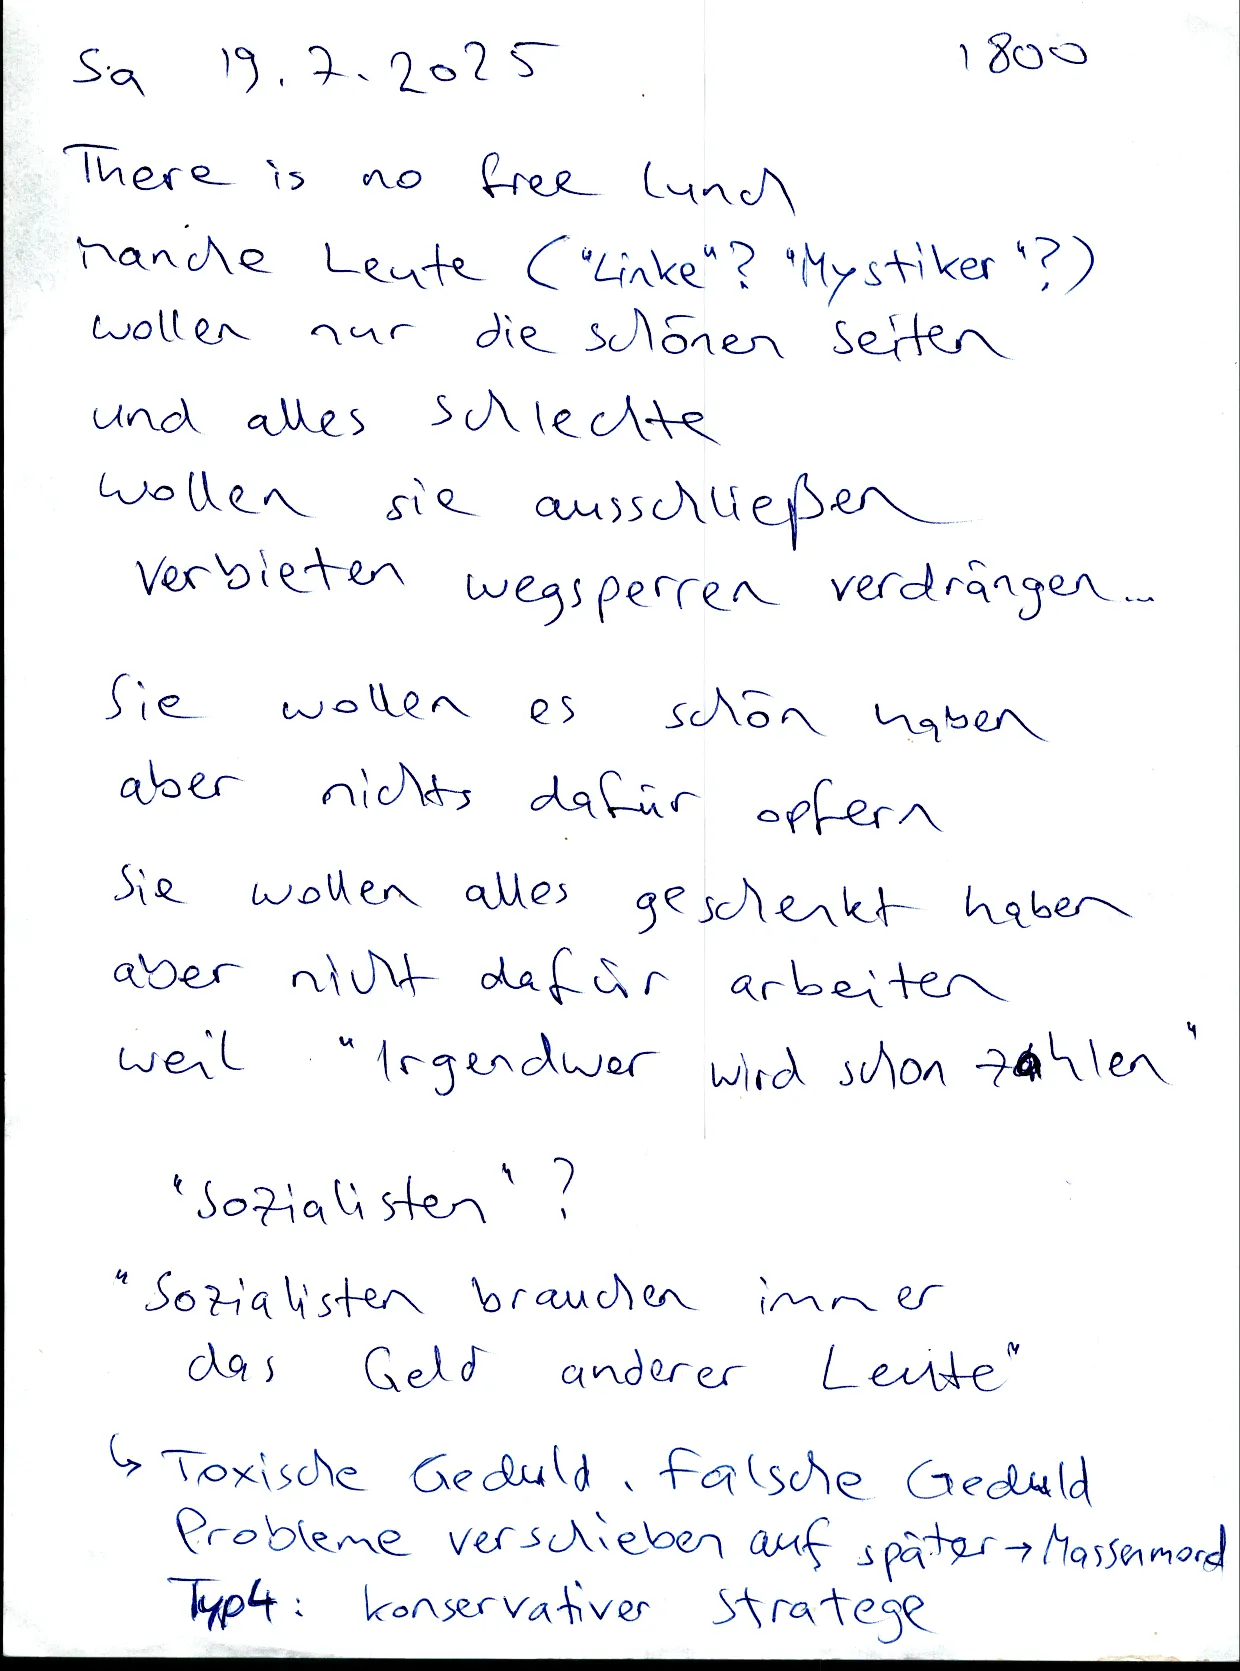 Sa 19.7.2025 1800
There is no free lunch
manche Leute ("Linke"? "Mystiker"?)
wollen nur die schönen seiten
und alles schlechte
wollen sie ausschließen
verbieten wegsperren verdrängen...
Sie wollen es schön haben
aber nichts dafür opfern
Sie wollen alles geschenkt haben
aber nicht dafür arbeiten
weil "Irgendwer wird schon zahlen"
"Sozialisten"?
"Sozialisten brauchen immer
das Geld anderer Leute"
↳ Toxische Geduld. Falsche Geduld
Probleme verschieben auf später → Massenmord
Typ4: konservativer Stratege